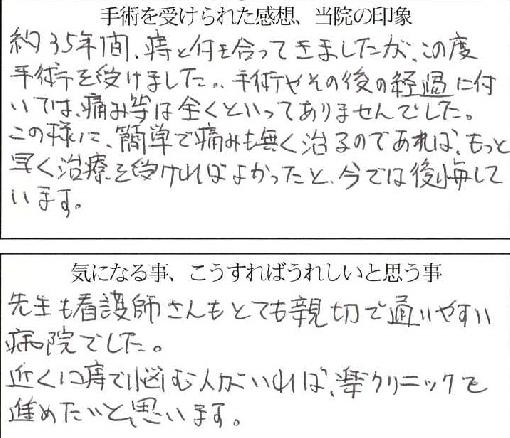 手術を受けられた感想、当院の印象
約35年間、痔と付き合ってきましたが、この度
手術を受けました。手術やその後の経過に付
いては、痛み等は全くといってありませんでした。
この様に、簡単で痛みも無く治るのであれば、もっと
早く治療を受ければよかったと、今では後悔して
います。
気になる事、こうすればうれしいと思う事
先生も看護師さんもとても親切で通いやすい
病院でした。
近くに痔で悩む人がいれば、楽クリニックを
進めたいと思います。